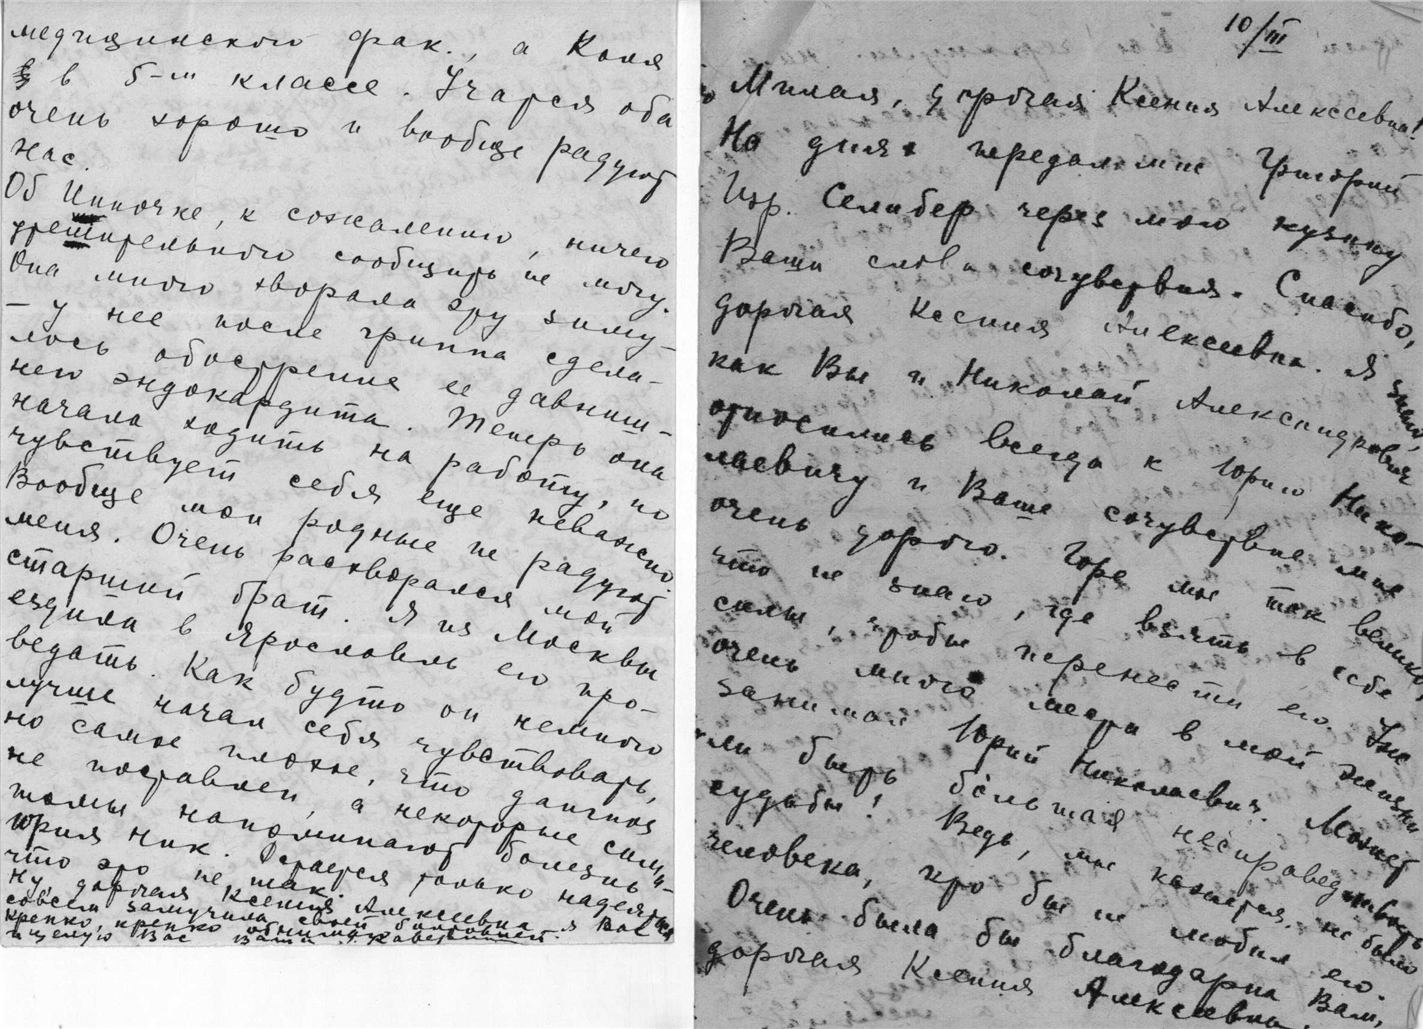 медицинского фак., а Коля
в 5-м классе. Учатся оба
очень хорошо и вообще радуют
нас.
Об Инночке, к сожалению, ничего
утешительного сообщить не могу.
Она много хворала эту зиму.
– у нее после гриппа сдела-
лось обострение ее давниш-
него эндокардита. Теперь она
начала ходить на работу, но
чувствует себя еще неважно.
Вообще мои родные не радуют
меня. Очень расхворался мой
старший брат. Я из Москвы
ездила в Ярославль его про-
ведать. Как будто он немного
лучше начал себя чувствовать,
но самое плохое, что диагноз
не поставлен, а некоторые симп-
томы напоминают болезнь
Юрия Ник. Остается только надеяться
что это не так.
Ну, дорогая Ксения Алексеевна я Вас
совсем замучила своей болтовней.
Крепко, крепко обнимаю
и целую Вас Ваша
10/III
Милая, дорогая Ксения Алексеевна!
На днях передал мне Григорий
Изр. Селибер через мою кузину
Ваши слова сочувствия. Спасибо,
дорогая Ксения Алексеевна. Я знаю,
как Вы и Николай Александрович
относились всегда к Юрию Нико-
лаевичу и Ваше сочувствие мне
очень дорого. Горе мое так велико,
что не знаю, где взять в себе
силы, чтобы перенести его. Уж
очень много места в моей жизни
занимал Юрий Николаевич. Может
ли быть большая несправедливость
судьбы! Ведь, мне кажется, не было
человека, кто бы не любил его.
Очень была бы благодарна Вам,
дорогая Ксения Алексеевна,